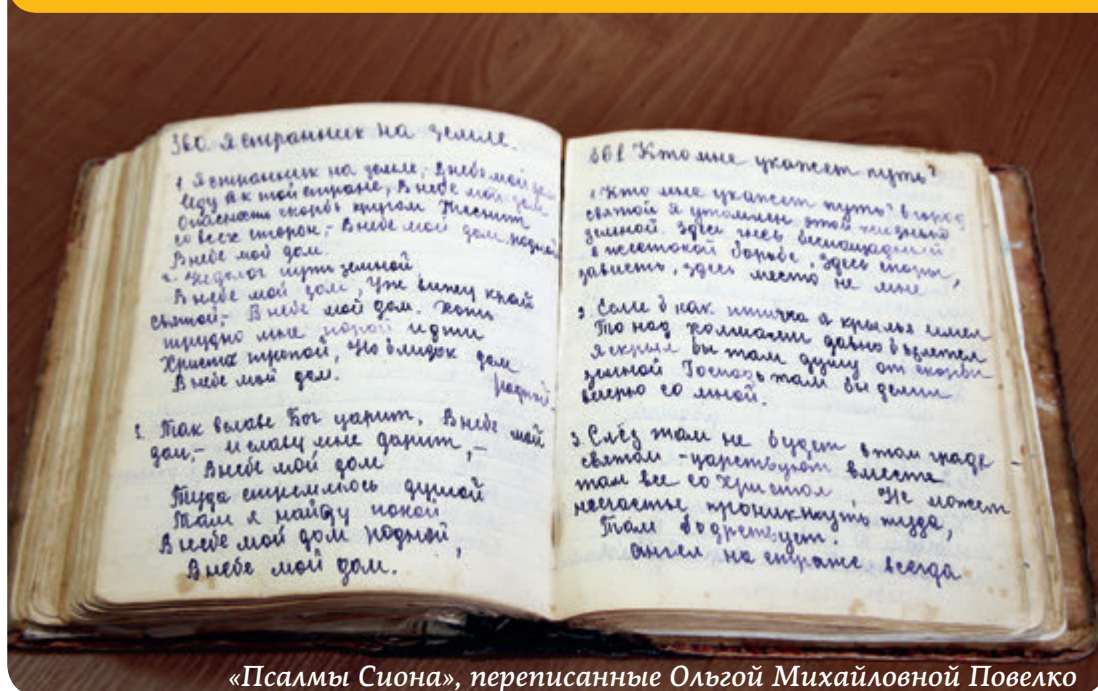 360. Я странник на земле.
1 Я странник на земле, В небе мой дом
Иду я к той стране, В небе мой дом
Опасность скорбь кругом Теснит
со всех сторон,- В небе мой дом родной
В небе мой дом.
2. Недолог путь земной
В небе мой дом, Уже вижу край
святой,- В небе мой дом. Хоть
трудно мне порой идти
Христа тропой, Но близок дом
родной.
В небе мой дом.
3. Там в славе Бог царит, В небе мой
дом,- И славу мне дарит,-
В небе мой дом
Туда стремлюсь душой
Там я найду покой
В небе мой дом родной,
В небе мой дом.
361 Кто мне укажет путь?
1 Кто мне укажет путь? в город
святой Я утомлен этой жизнью
земной. Здесь гнев беспощадный
в жестокой борьбе, здесь споры,
зависть, здесь место не мне
2. Если б как птичка я крылья имел
То над холмами давно б
Я скрыл бы там душу от скорби
земной Господь там бы делил
вечерю со мной.
3. Слёз там не будет в том граде
святом - царствуют вместе
там все со Христом, Не может
несчастье проникнуть туда,
Там
ангел на страже всегда
«Псалмы Сиона», переписанные Ольгой Михайловной Повелко